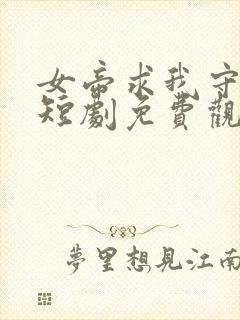 女帝求我守
短劇免費觀
夢里想見江南